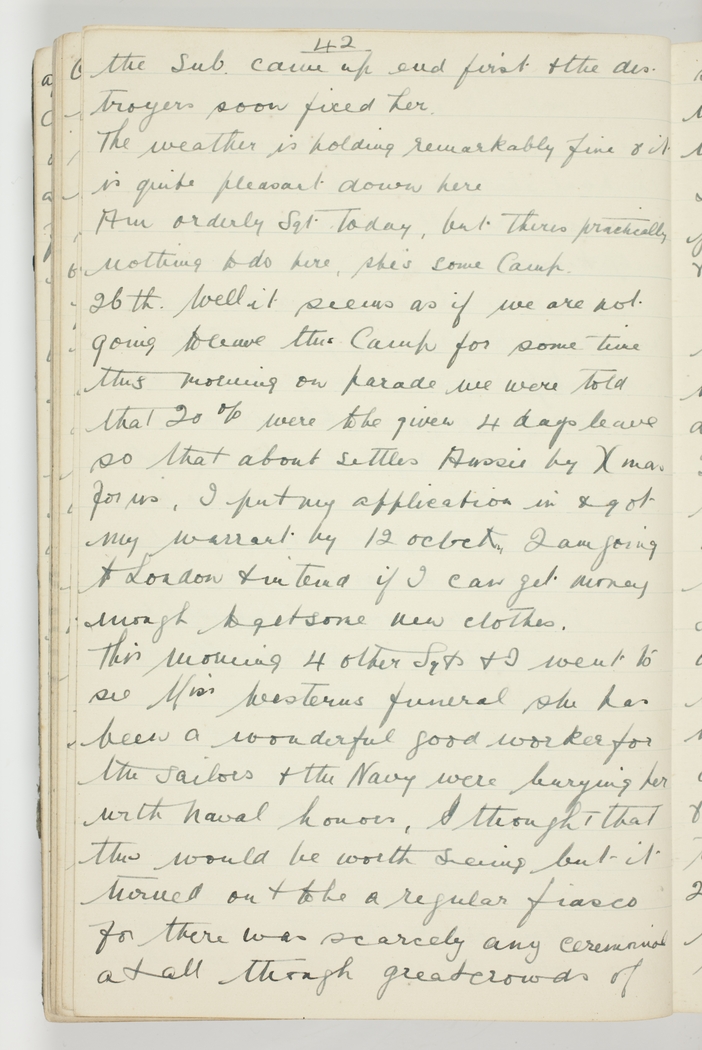 42
the Sub. came up end first & the des-
troyers soon fixed her.
The weather is holding remarkably fine & it
is quite pleasant down here
Am orderly Sgt today, but theres practically
nothing to do here, she's some Camp.
26th. Well it seems as if we are not
going to leave this Camp for some time
this morning on parade we were told
that 20% were to be given 4 days leave
so that about settles Aussie by Xmas
for us, I put my application in & got
my warrant by 12 oclock, I am going
to London & intend if I can get money
enough to get some new clothes.
This morning 4 other Sgts & I went to
see Miss Westerns funeral she has
been a wonderful good worker for
the Sailors & the Navy were burying her
with Naval honors, I thought that
this would be worth seeing but it
turned out to be a regular fiasco
for there was scarcely any ceremonial
at all though great crowds of